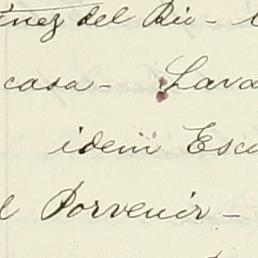 ínez del Rio -
casa - Lava
idem Escu
l Porvenir -